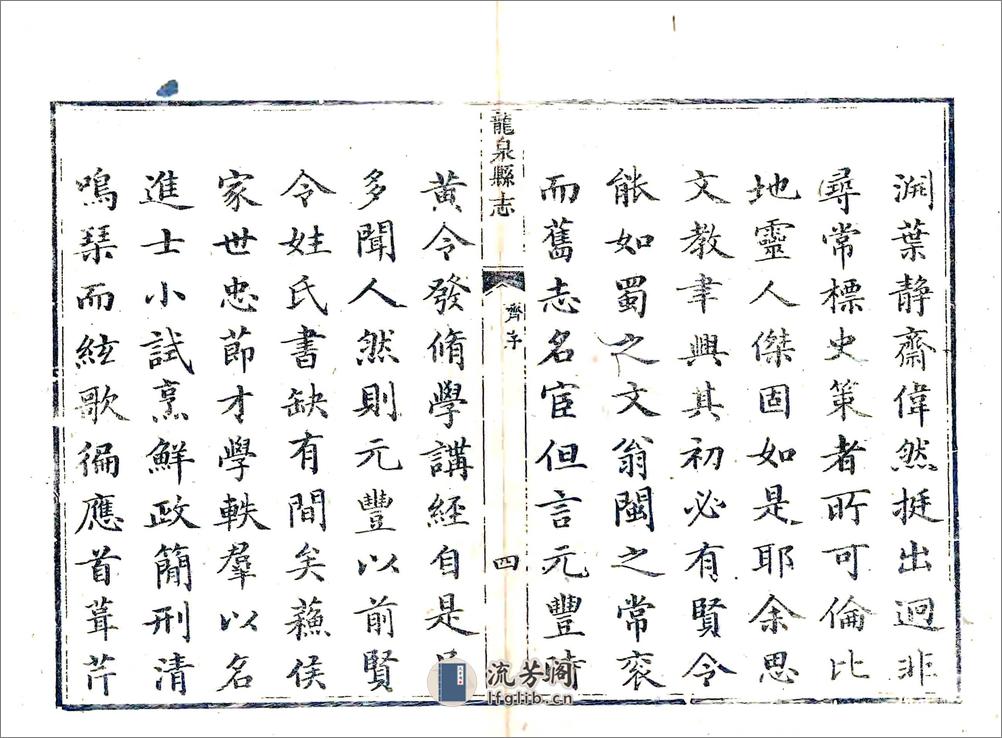 淵葉静齋偉然挺出迥非
尋常標史策者所可倫比
地靈人傑固如是耶余思
文教聿興其初必有賢令
能如蜀之文翁閩之常衮
而舊志名宦但言元豐時
龍泉縣志
齊序
四
黄令發脩學講經自是
多聞人然則元豐以前賢
令姓氏書缺有間矣蘓侯
家世忠節才學軼羣以名
進士小試烹鮮政簡刑清
鳴琴而絃歌徧應首葺芹
流芳阁
lfglib.cn